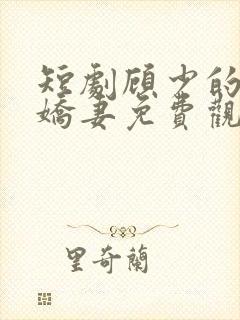 短劇顾少的
嬌妻免費觀
里奇蘭